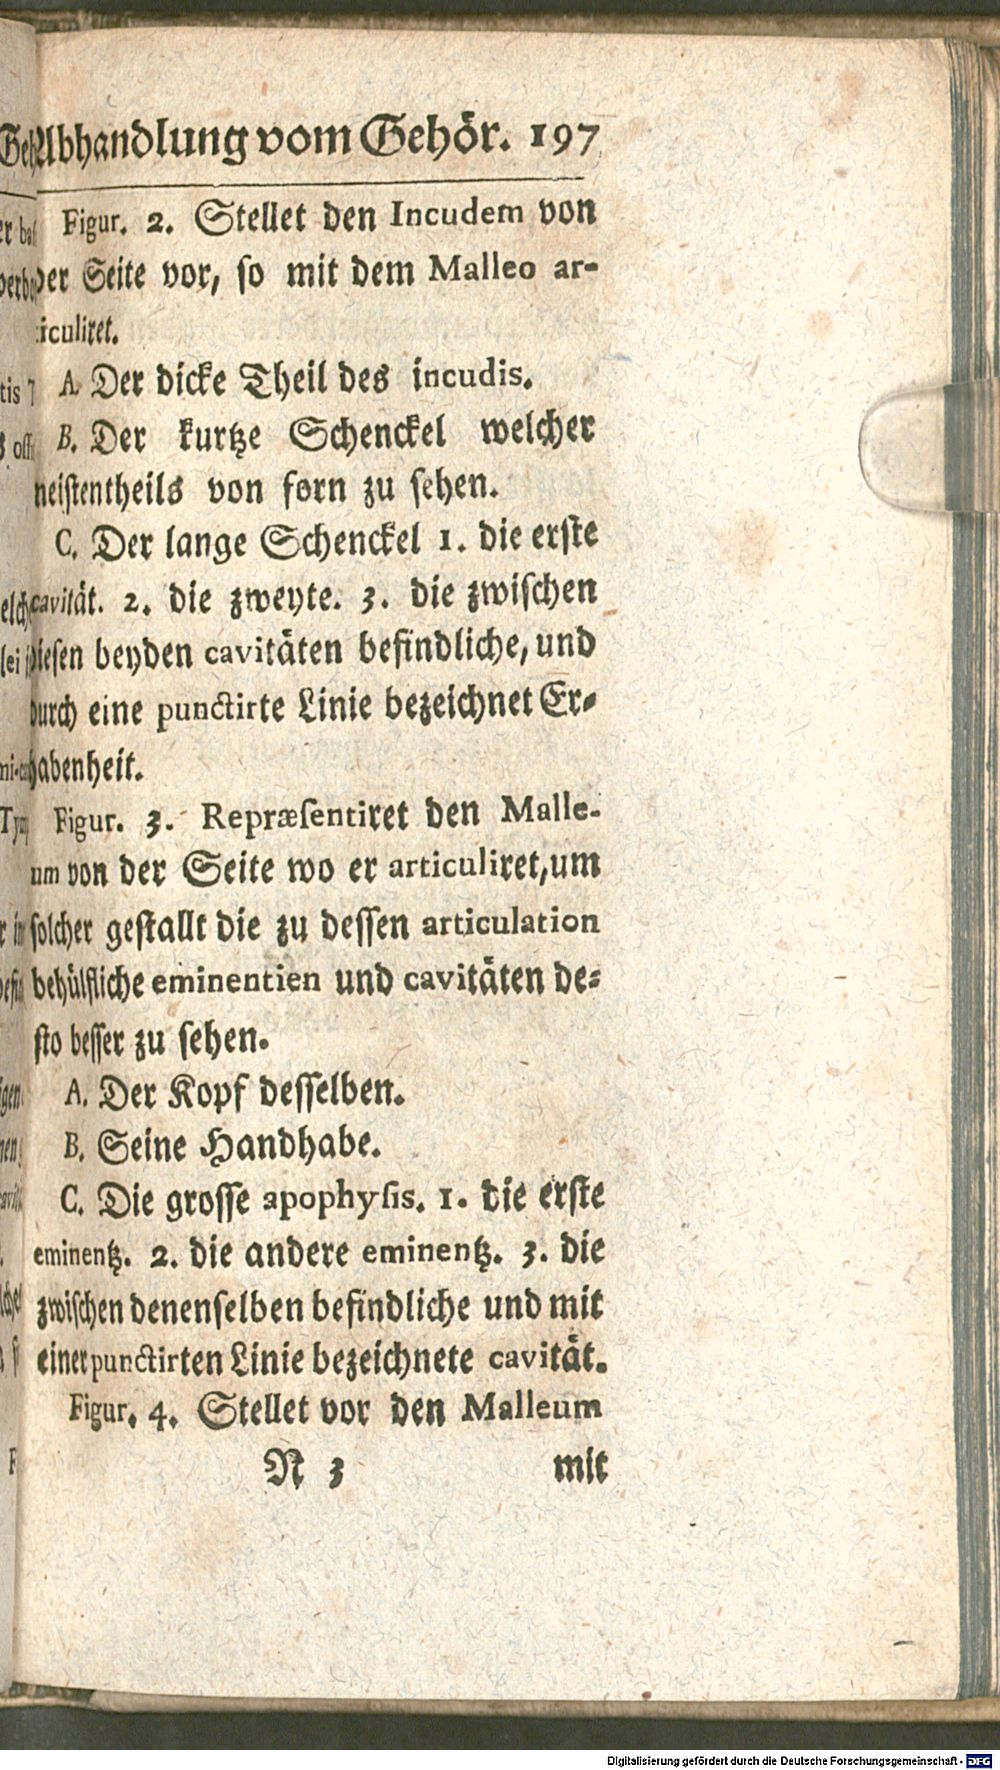 Abhandlung vom Gehör. 197
Figur. 2. Stellet den Incudem von
der Seite vor, so mit dem Malleo ar-
ticuliret.
A. Der dicke Theil des incudis.
B. Der kurtze Schenckel welcher
meistentheils von forn zu sehen.
C. Der lange Schenckel 1. die erste
cavität. 2. die zweyte. 3. die zwischen
diesen beyden cavitäten befindliche, und
durch eine punctirte Linie bezeichnet Er-
habenheit.
Figur. 3. Repræsentiret den Malle-
um von der Seite wo er articuliret, um
solcher gestallt die zu dessen articulation
behülfliche eminentien und cavitäten de-
sto besser zu sehen.
A. Der Kopf desselben.
B. Seine Handhabe.
C. Die grosse apophysis. 1. die erste
eminentz. 2. die andere eminentz. 3. die
zwischen denenselben befindliche und mit
einer punctirten Linie bezeichnete cavität.
Figur. 4. Stellet vor den Malleum
N 3 mit
Digitalisierung gefördert durch die Deutsche Forschungsgemeinschaft - DFG